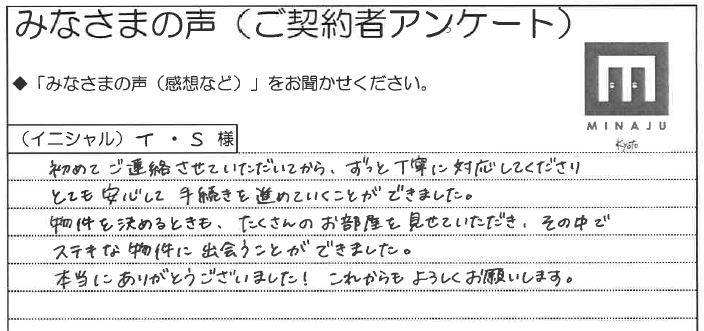 みなさまの声（ご契約者アンケート）
◆「みなさまの声（感想など）」をお聞かせください。
MINAJU
Kyoto
（イニシャル）T ・ S 様
初めてご連絡させていただいてから、ずっと丁寧に対応してくださり
とても安心して手続きを進めていくことができました。
物件を決めるときも、たくさんのお部屋を見せていただき、その中で
ステキな物件に出会うことができました。
本当にありがとうございました！これからもよろしくお願いします。